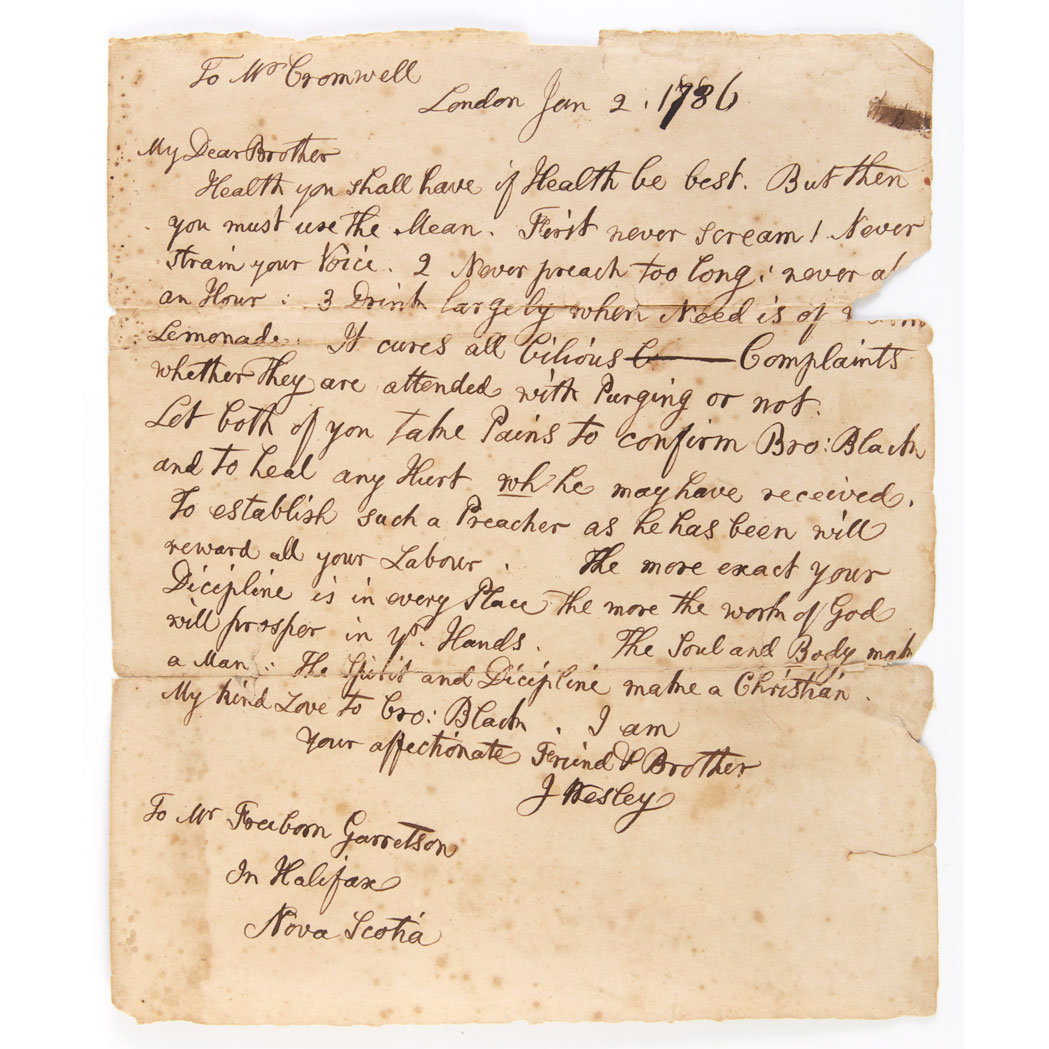 To Mr Cromwell
London Jan 2. 1786
My Dear Brother
Health you shall have if Health be best. But then
you must use the Mean. First never scream! Never
strain your Voice. 2 Never preach too long; never
an Hour: 3 Drink largely when Need is of
Lemonade. It cures all bilious Complaints
whether They are attended with Purging or not.
Let both of you take Pains to confirm Bro: Black
and to heal any Hurt wh he may have received.
To establish such a Preacher as he has been will
reward all your Labour. The more exact your
Dicipline is in every Place the more the work of God
will prosper in yr. Hands. The Soul and Body mak
a Man: The Spirit and Dicipline make a Christian.
My kind Love to Bro: Black. I am
Your affectionate Friend & Brother
J Wesley
To Mr Freeborn Garretson
In Halifax
Nova Scotia